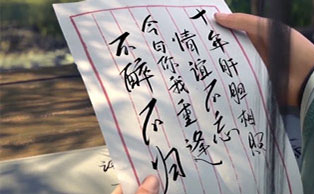 十年肝胆相照
情谊不忘
今与你我重逢
不醉不归